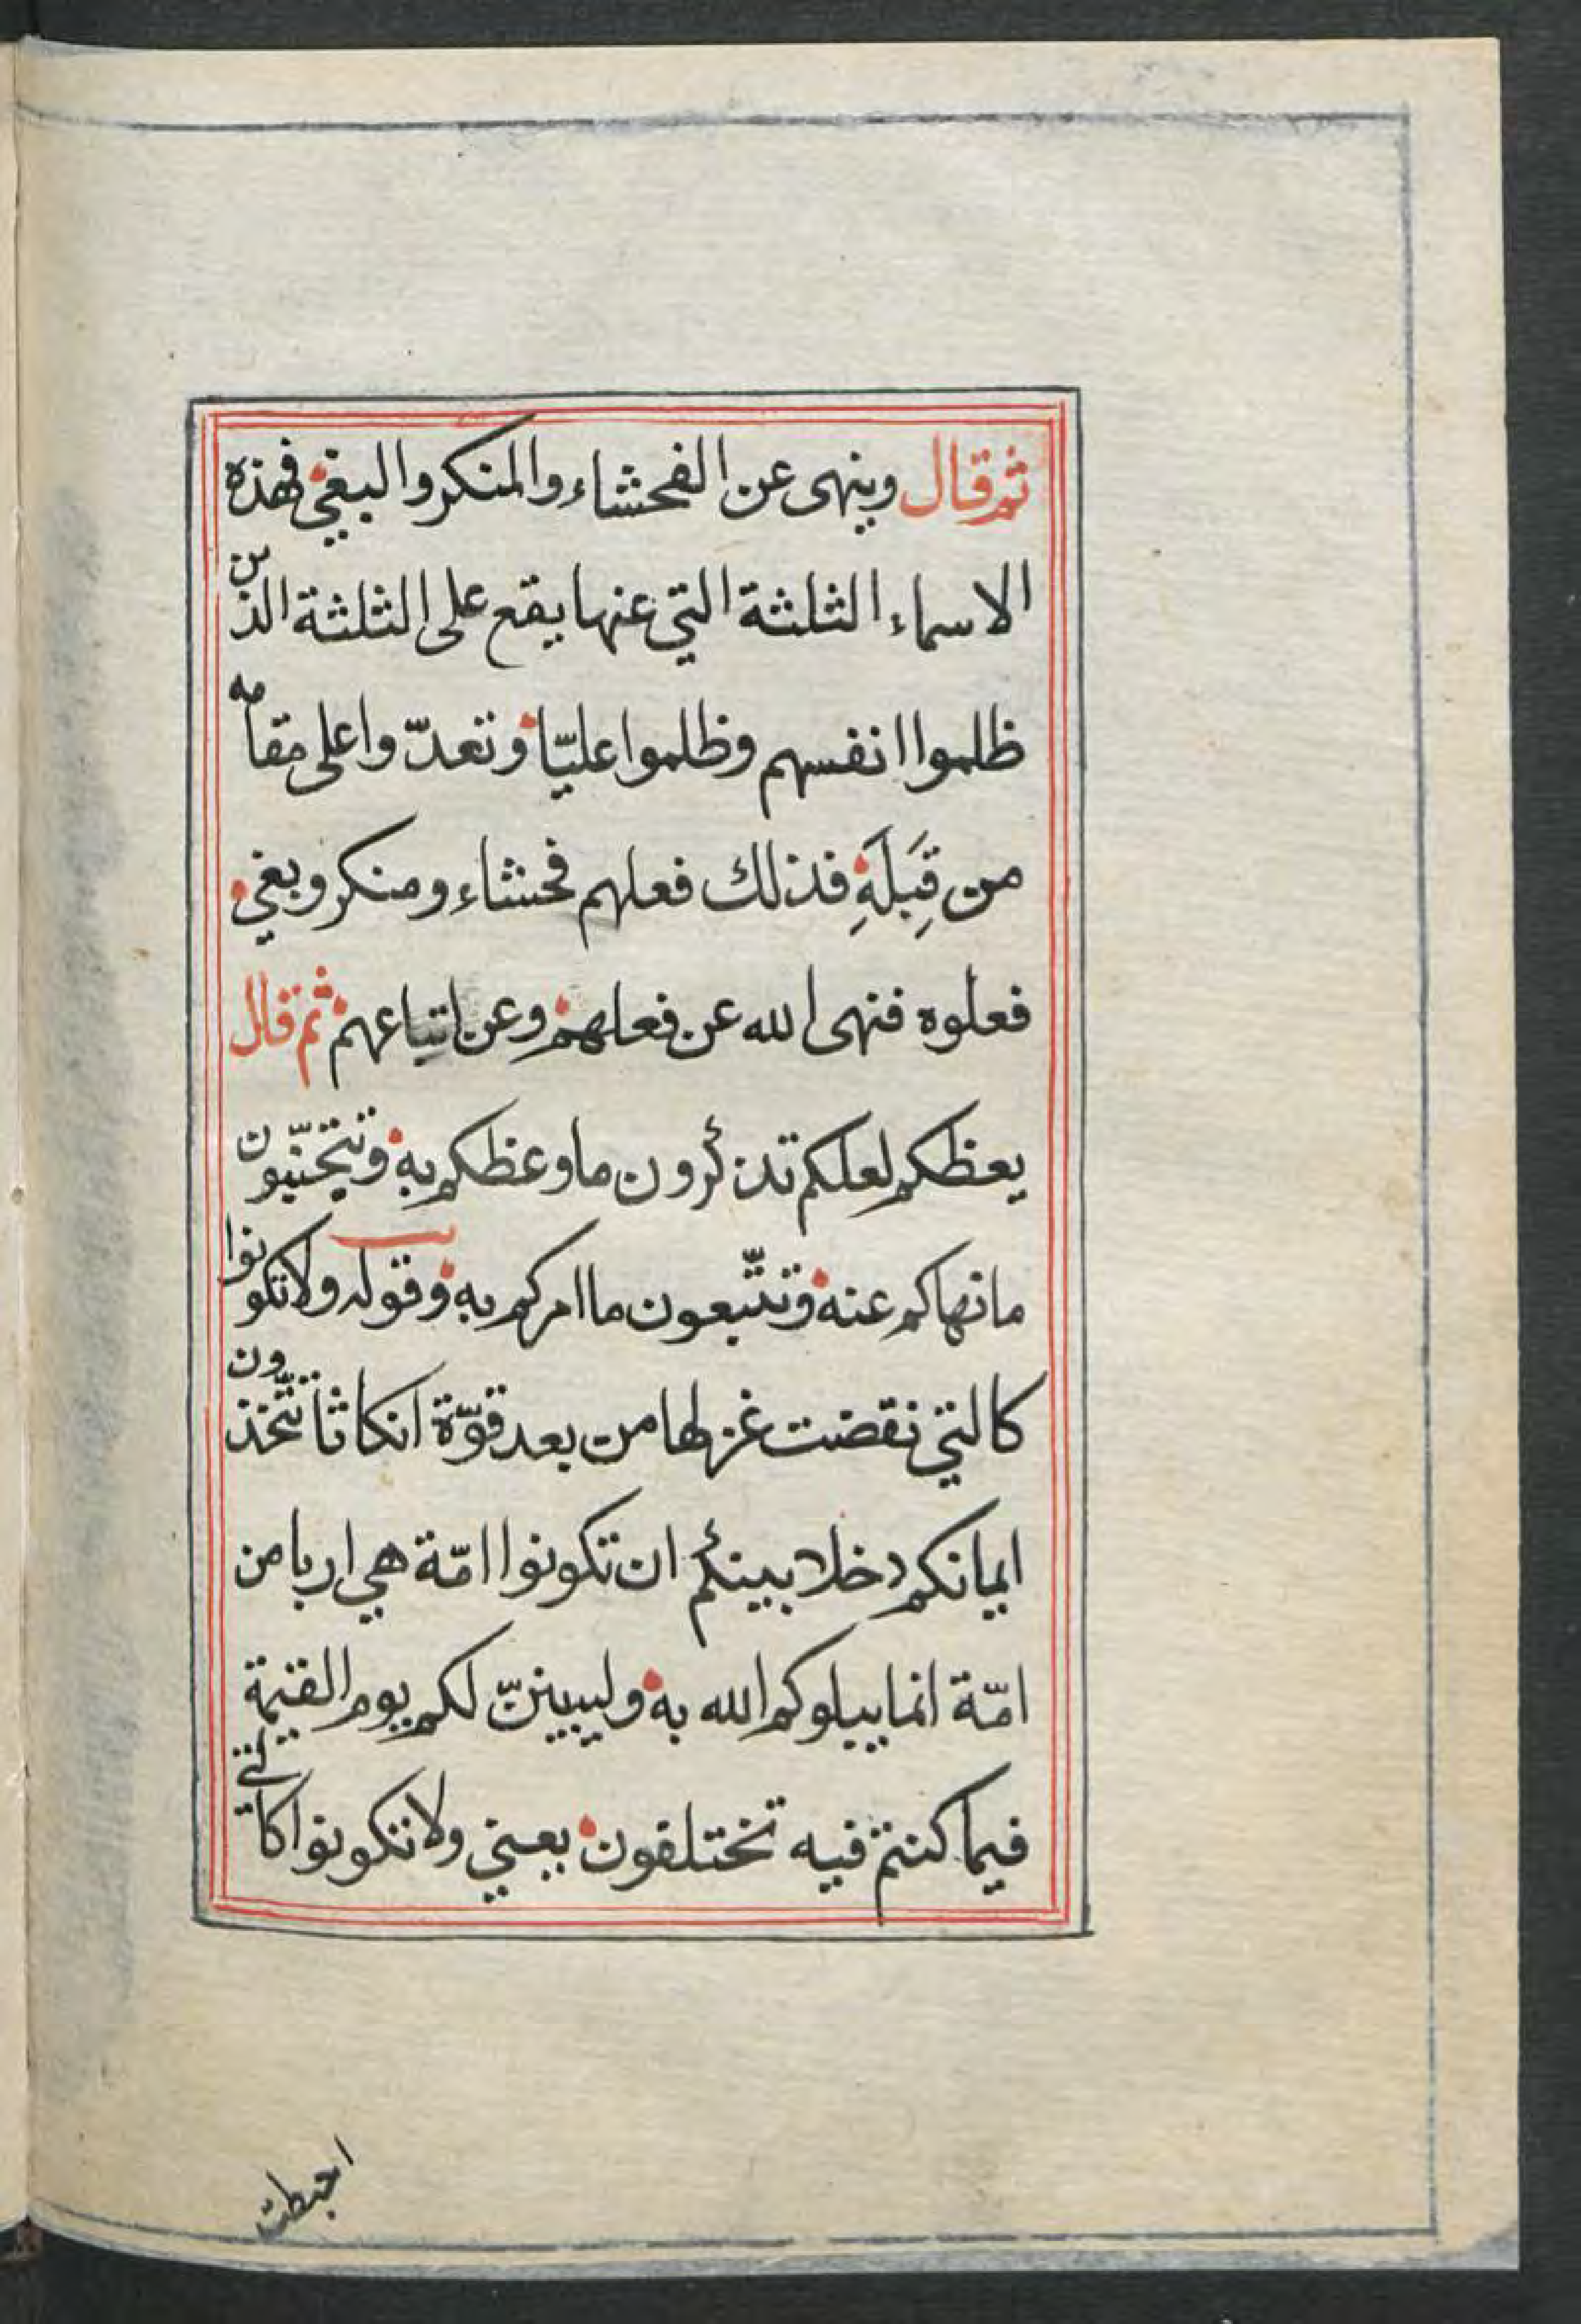 ثم قال وينهى عن الفحشاء والمنكر والبغي فهذه
الاسماء الثلثة التي عنها يقع على الثلثة الذين
ظلموا انفسهم وظلموا عليّا وتعدّوا على مقامه
من قِبَلَهِ فذلك فعلهم فحشاء ومنكر وبغي
فعلوه فنهى الله عن فعلهم وعن اتباعهم ثم قال
يعظكم لعلكم تذكرون ما وعظكم به وتتجنّبون
ما نهاكم عنه وتتّبعون ما امركم به وقوله ولا تكونوا
كالتي نقضت غزلها من بعد قوّة انكاثا تتّخذون
ايمانكم دخلا بينكم ان تكونوا امّة هي اربا من
امّة انما يبلوكم الله به وليبيننّ لكم يوم القيمة
فيما كنتم فيه تختلفون يعني ولا تكونوا كالتي
احبطت